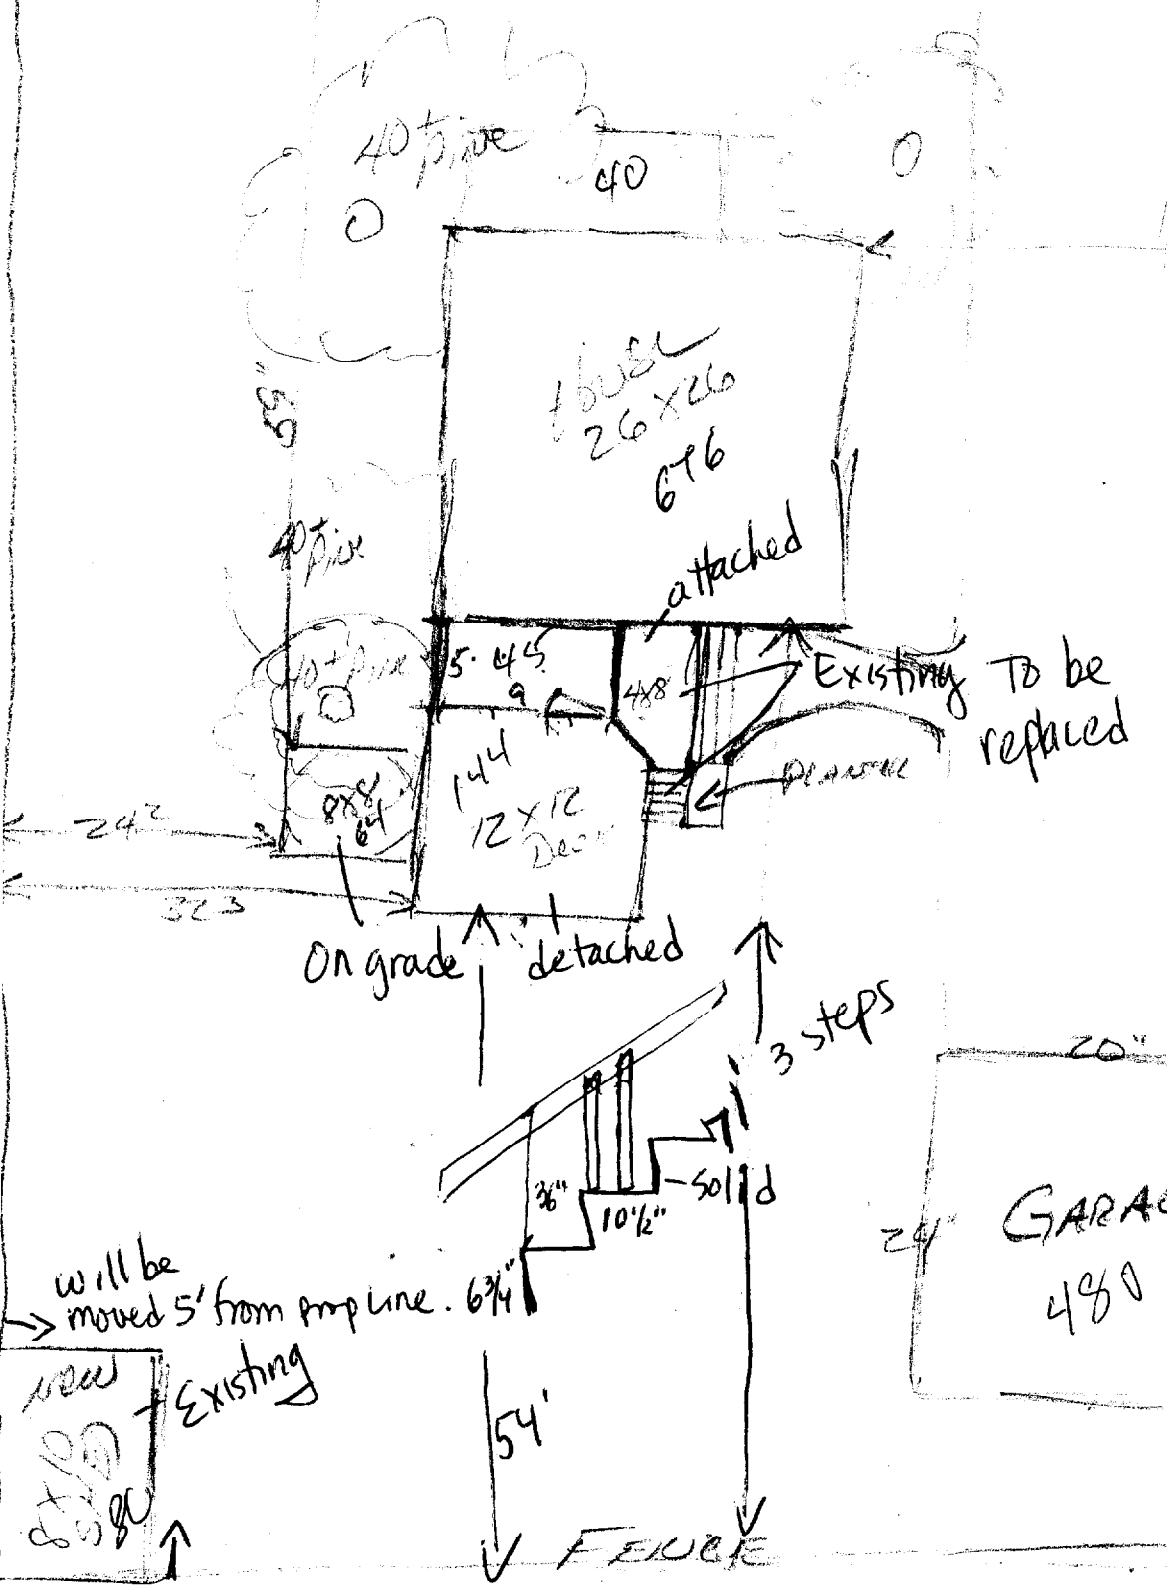 40+ pine
40
O
O
House
26 x 26
676
55"
attached
40+ Pine
40+ Pine
5. 45
9
4x8
Existing To be
replaced
PLANTER
144
12 x 12
Deck
8x8
64
24²
323
On grade
detached
3 steps
20"
36"
10 1/2"
solid
7"
24"
GARAG
480
will be
moved 5' from prop line.
6 3/4"
Existing
NEW
8 x 10
80
54'
FENCE